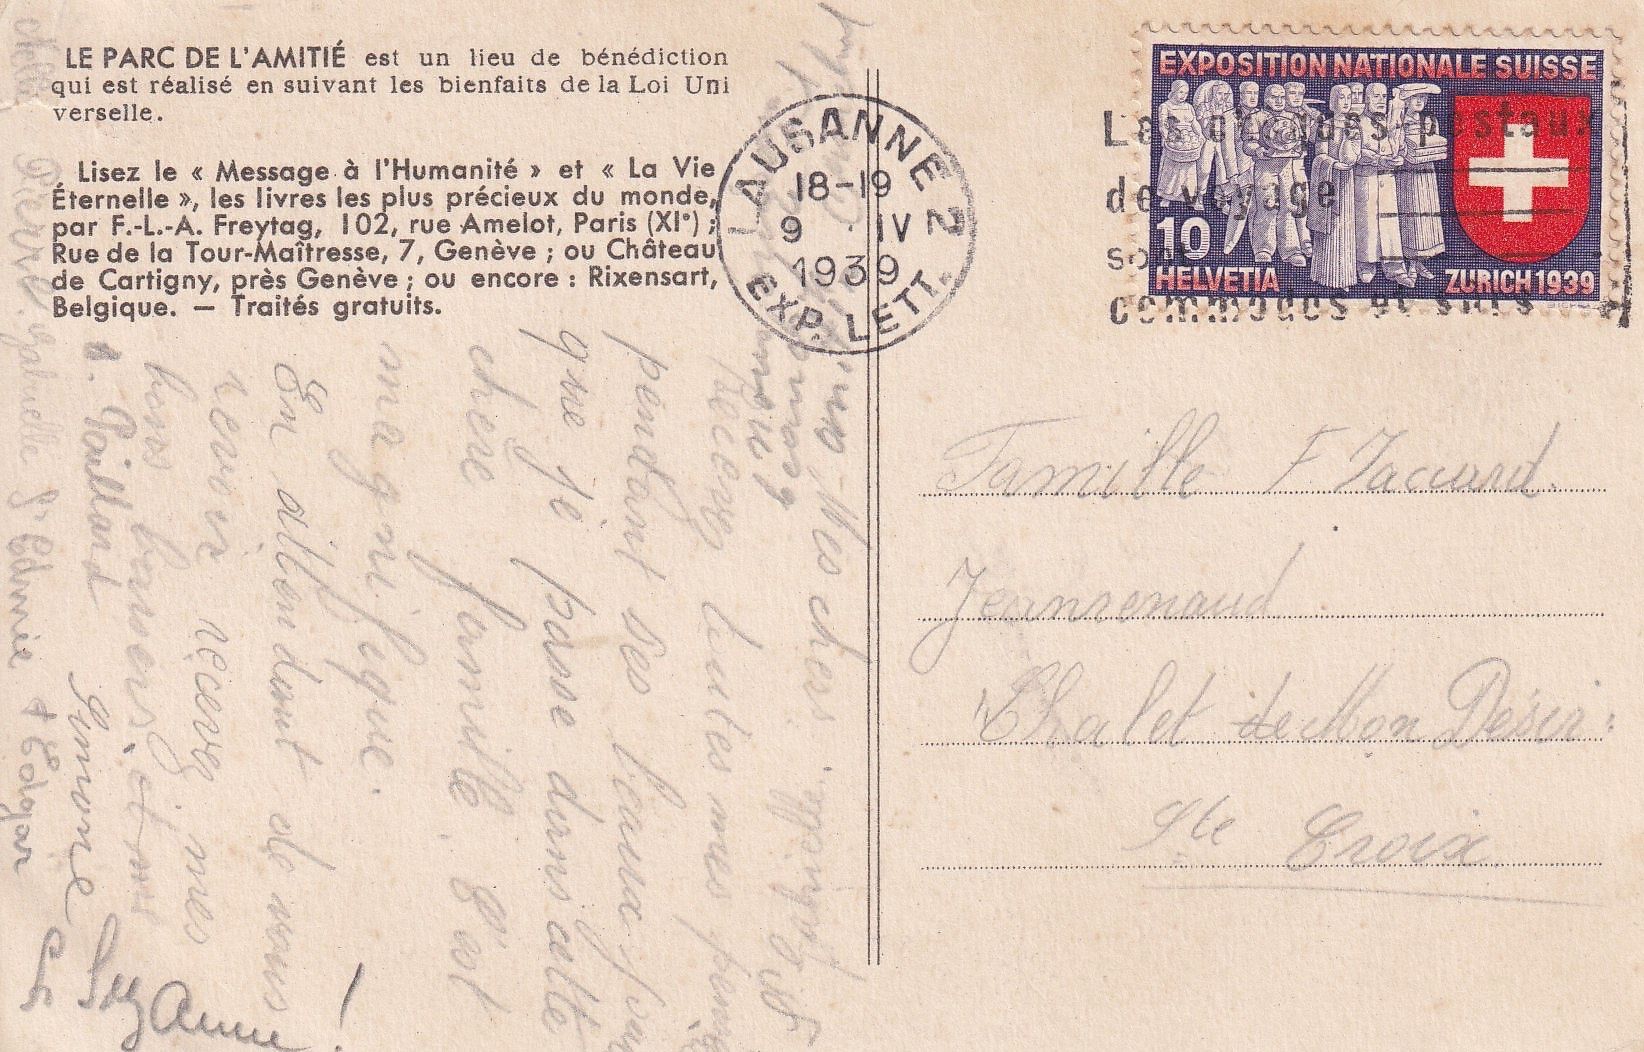 LE PARC DE L'AMITIÉ est un lieu de bénédiction
qui est réalisé en suivant les bienfaits de la Loi Uni
verselle.
Lisez le « Message à l'Humanité » et « La Vie
Éternelle », les livres les plus précieux du monde,
par F.-L.-A. Freytag, 102, rue Amelot, Paris (XIᵉ) ;
Rue de la Tour-Maîtresse, 7, Genève ; ou Château
de Cartigny, près Genève ; ou encore : Rixensart,
Belgique. — Traités gratuits.
LAUSANNE 2
18-19
9 · IV
1939
EXP. LETT.
EXPOSITION NATIONALE SUISSE
10
HELVETIA
ZURICH 1939
Les chèques postaux
de voyage
sont
commodes et sûrs
Famille F Jaccard.
Jeanrenaud
Chalet de Mon Désir
Ste Croix
Mes chers.
Recevez toutes mes
pendant ses beaux jours
que je passe dans cette
chère famille. C'est
magnifique.
En attendant de vous
revoir recevez mes
bons baisers.
Paillard
Simone
Suzanne!
Pierre. Gabrielle
Edmée + Edgar
Gabrielle